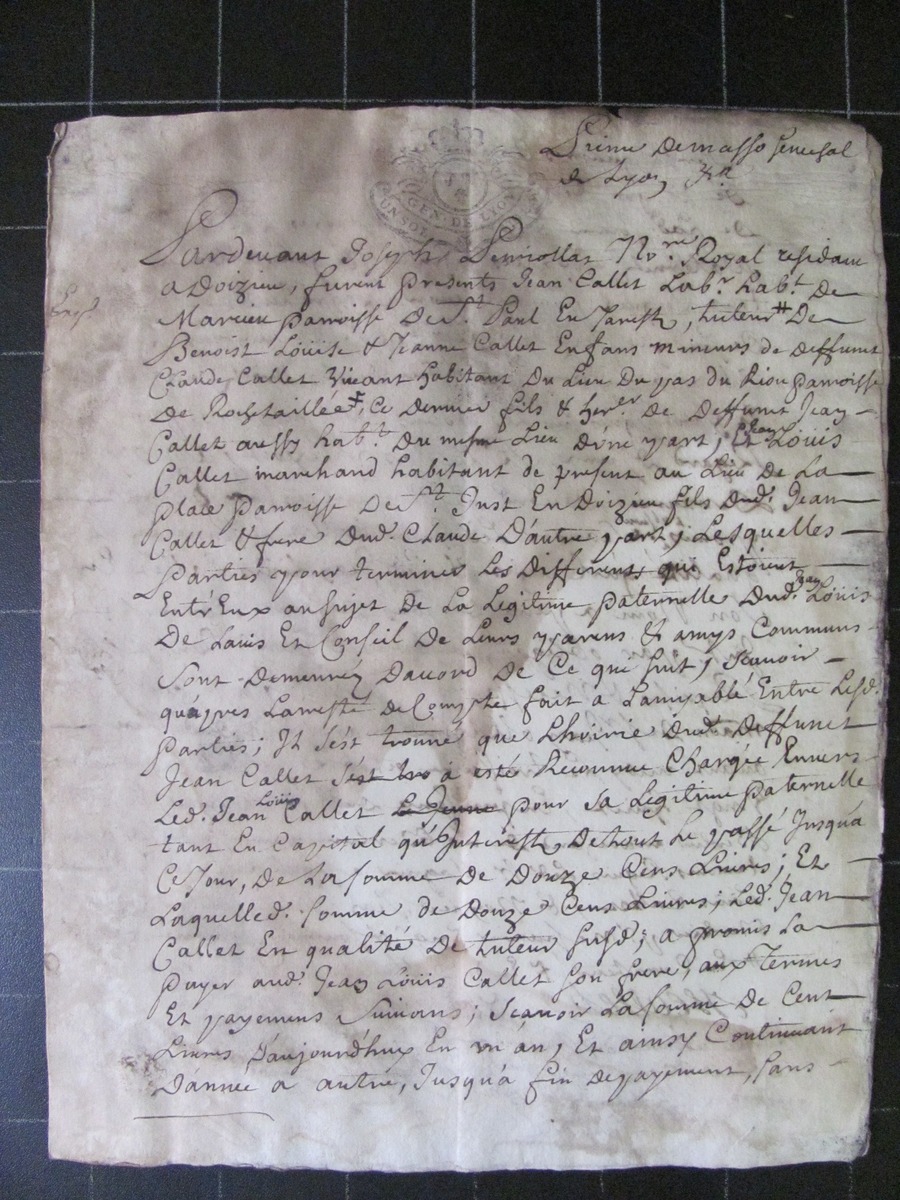 GEN. DE LYON
UN SOL
de Lyon
Pardevant Joseph Perriollat No.re Royal residant
a Doizieu, furent presents Jean Callet Lab.r hab.t De
Marcieu parroisse De S.t Paul En Jarest, tuteur # De
Benoist Loüise & Jeanne Callet Enfans mineurs de deffunct
Claude Callet Vivant habitant Du Lieu Du pas du Riou parroisse
De Rochetaillée, Ce dernier fils & her.er de deffunct Jean
Callet aussy hab.t Du mesme Lieu d'une part, Et Jean Loüis
Callet marchand habitant de present au Lieu De La
place parroisse De S.t Just En Doizieu fils Dud. Jean
Callet & frere Dud. Claude D'autre part, Lesquelles
Parties pour terminer Les Differents qui Estoient
Entr'Eux au sujet de La Legitime paternelle Dud. Jean Loüis
De L'avis Et Conseil De Leurs parens & amys Communs
Sont Demeuréz D'accord de Ce que suit, Scavoir
qu'apres L'arresté de Compte fait a L'amyablé Entre Lesd.
parties; Il s'est trouvé que L'hoirie Dud. Deffunct
Jean Callet s'est tro à esté Reconnue Chargée Envers
Led. Jean Loüis Callet Le Jeune pour sa Legitime paternelle
tant En Capital qu'Interests, De tout Le passé Jusqu'a
Ce Jour, De La somme De Douze Cens Livres; Et
Laquelled. somme de Douze Cens Livres; Led. Jean
Callet En qualité De tuteur susd; a promis La
payer aud. Jean Loüis Callet son frere, aux Termes
Et payemens Suivans; Scavoir La somme De Cent
Livres d'aujourd'huy En un an, Et ainsy Continuant
D'année a autre, Jusqu'a fin de payement, sans